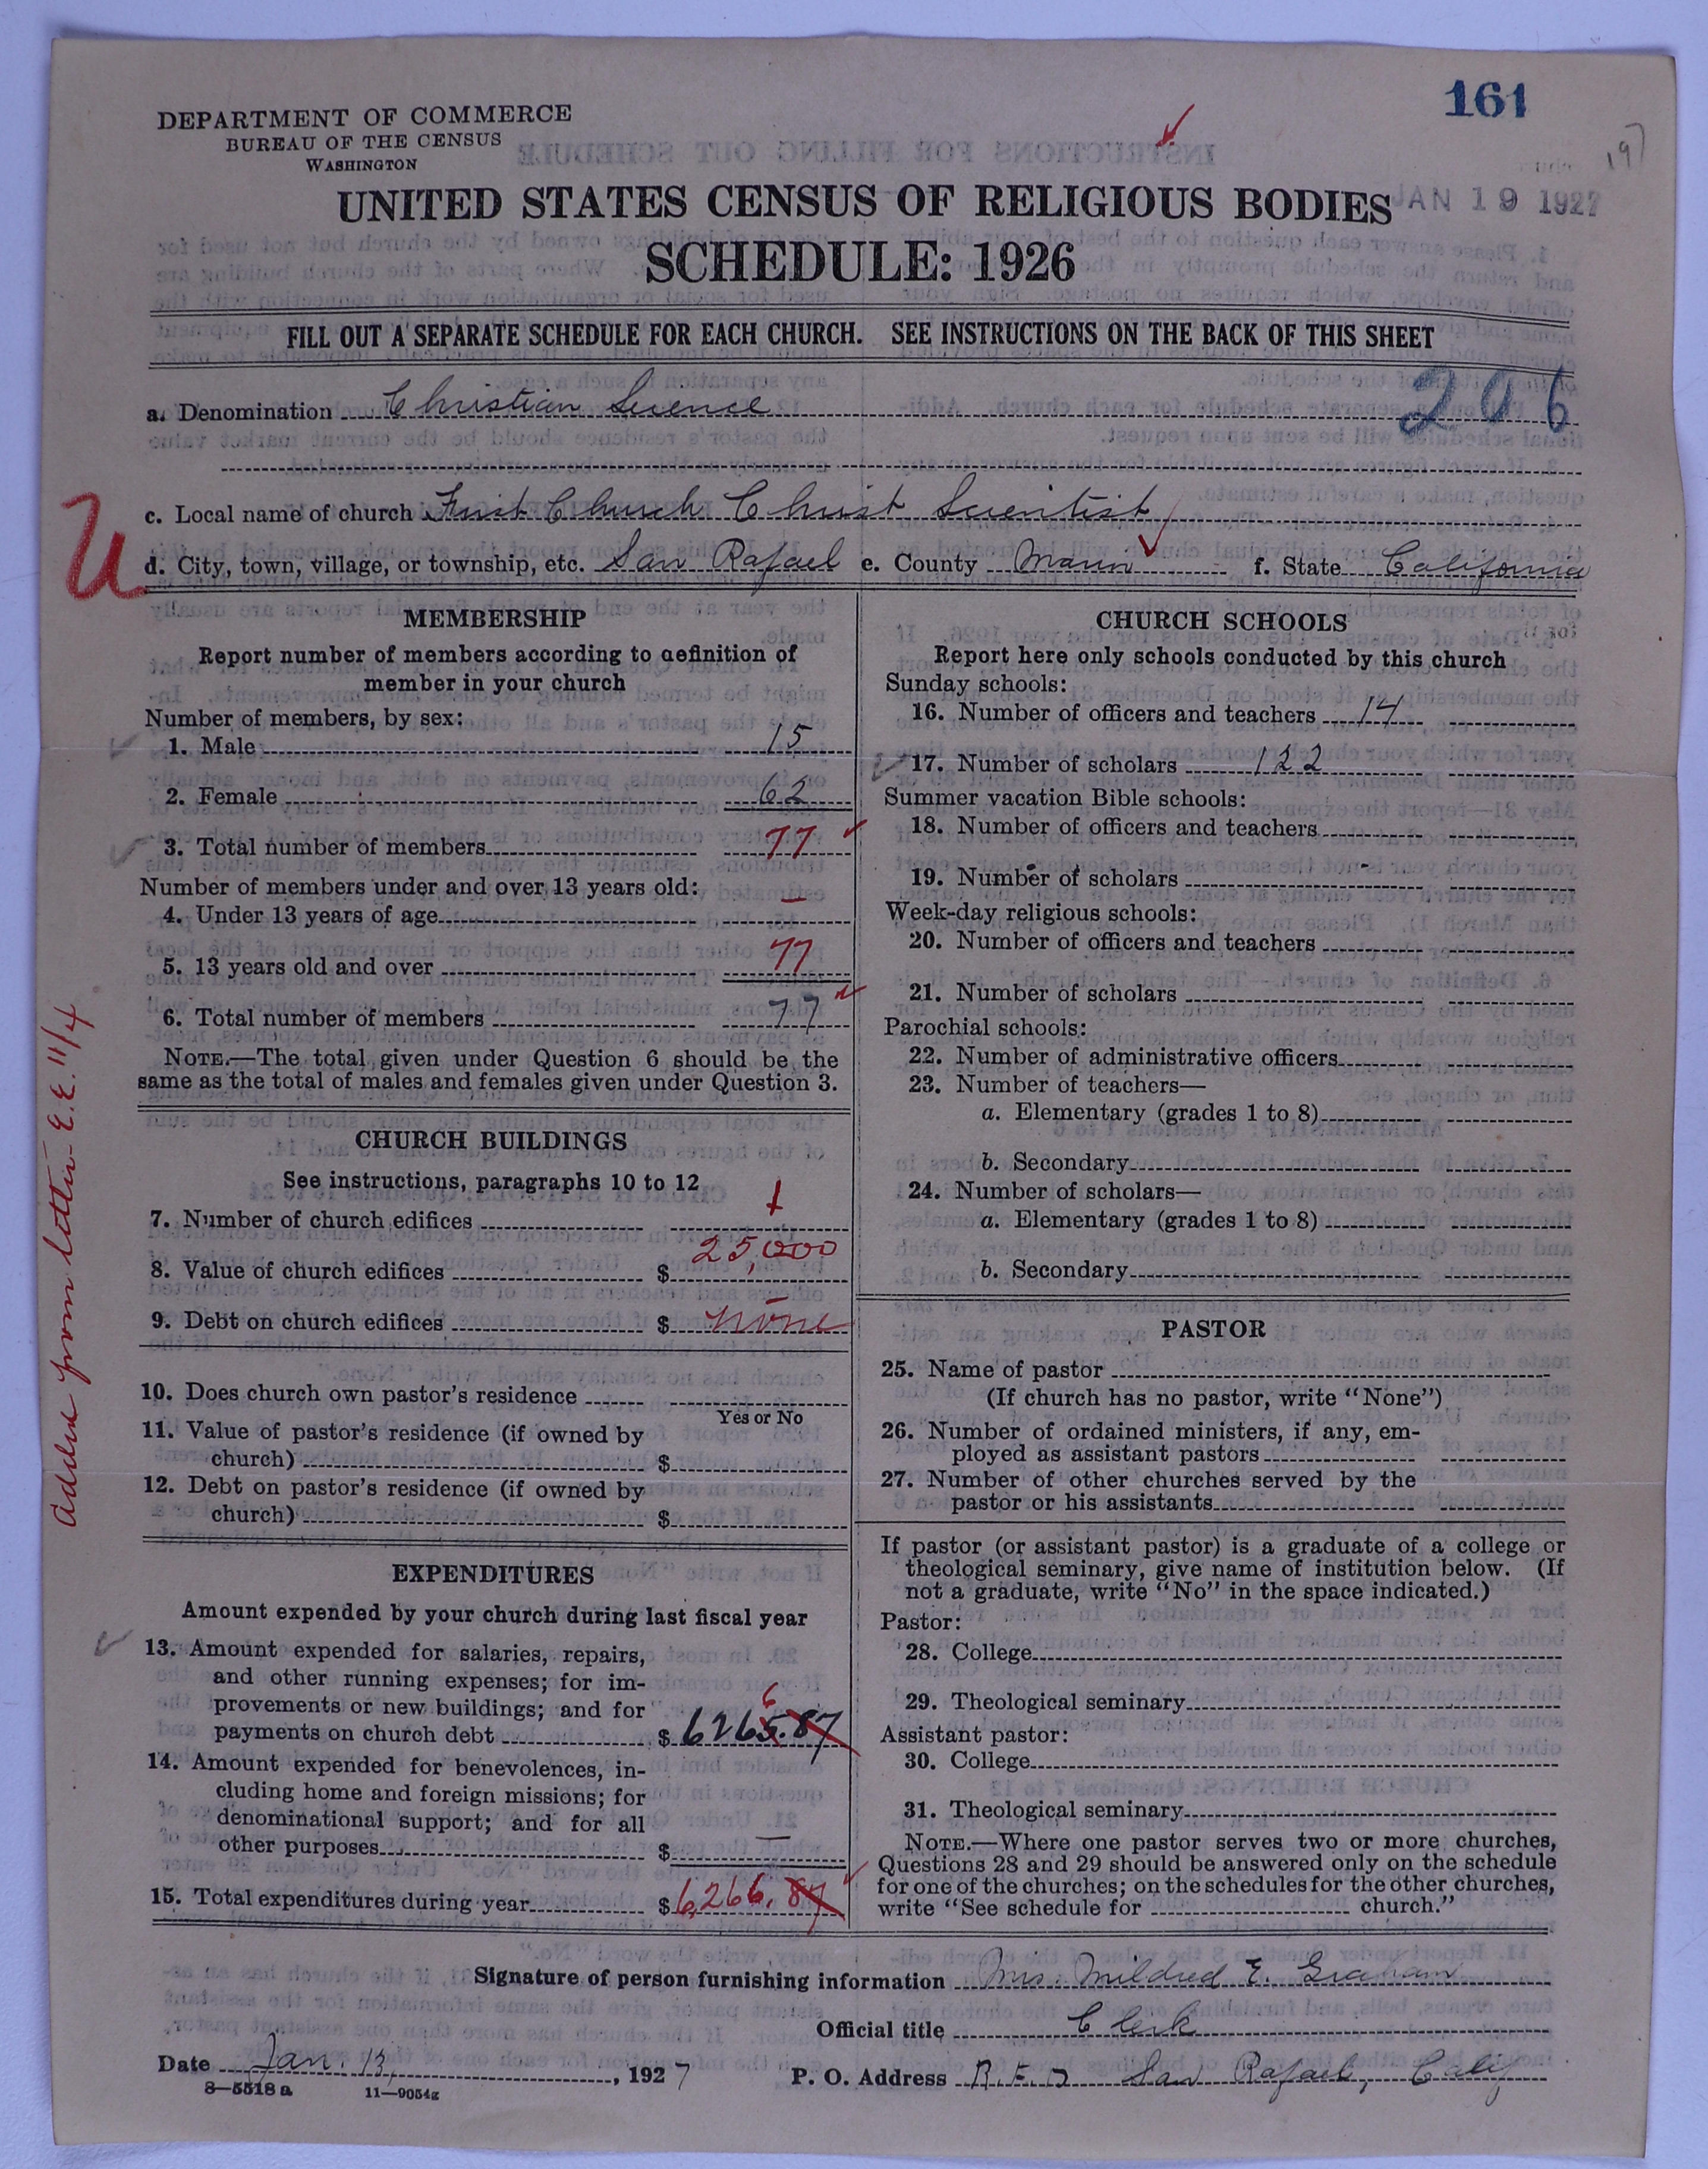 161
197
DEPARTMENT OF COMMERCE
BUREAU OF THE CENSUS
WASHINGTON
JAN 19 1927
UNITED STATES CENSUS OF RELIGIOUS BODIES
SCHEDULE: 1926
FILL OUT A SEPARATE SCHEDULE FOR EACH CHURCH. SEE INSTRUCTIONS ON THE BACK OF THIS SHEET
a. Denomination Christian Science 206
c. Local name of church First Church Christ Scientist
U
d. City, town, village, or township, etc. San Rafael e. County Marin f. State California
MEMBERSHIP
Report number of members according to definition of
member in your church
Number of members, by sex:
1. Male 15
2. Female 62
3. Total number of members 77
Number of members under and over 13 years old:
4. Under 13 years of age —
5. 13 years old and over 77
6. Total number of members 77
NOTE.—The total given under Question 6 should be the
same as the total of males and females given under Question 3.
CHURCH BUILDINGS
See instructions, paragraphs 10 to 12
7. Number of church edifices 1
8. Value of church edifices $ 25,000
9. Debt on church edifices $ none
10. Does church own pastor's residence
Yes or No
11. Value of pastor's residence (if owned by
church) $
12. Debt on pastor's residence (if owned by
church) $
EXPENDITURES
Amount expended by your church during last fiscal year
13. Amount expended for salaries, repairs,
and other running expenses; for im-
provements or new buildings; and for
6
payments on church debt $ 6265.87
14. Amount expended for benevolences, in-
cluding home and foreign missions; for
denominational support; and for all
other purposes $ —
15. Total expenditures during year $ 6,266.87
added from letter- E.E. 11/4
CHURCH SCHOOLS
Report here only schools conducted by this church
Sunday schools:
16. Number of officers and teachers 14
17. Number of scholars 122
Summer vacation Bible schools:
18. Number of officers and teachers
19. Number of scholars
Week-day religious schools:
20. Number of officers and teachers
21. Number of scholars
Parochial schools:
22. Number of administrative officers
23. Number of teachers—
a. Elementary (grades 1 to 8)
b. Secondary
24. Number of scholars—
a. Elementary (grades 1 to 8)
b. Secondary
PASTOR
25. Name of pastor
(If church has no pastor, write "None")
26. Number of ordained ministers, if any, em-
ployed as assistant pastors
27. Number of other churches served by the
pastor or his assistants
If pastor (or assistant pastor) is a graduate of a college or
theological seminary, give name of institution below. (If
not a graduate, write "No" in the space indicated.)
Pastor:
28. College
29. Theological seminary
Assistant pastor:
30. College
31. Theological seminary
NOTE.—Where one pastor serves two or more churches,
Questions 28 and 29 should be answered only on the schedule
for one of the churches; on the schedules for the other churches,
write "See schedule for church."
Signature of person furnishing information Mrs. Mildred E. Graham
Official title Clerk
Date Jan. 13, 1927 P. O. Address R.F.D San Rafael, Calif
8—5518a 11—9054g